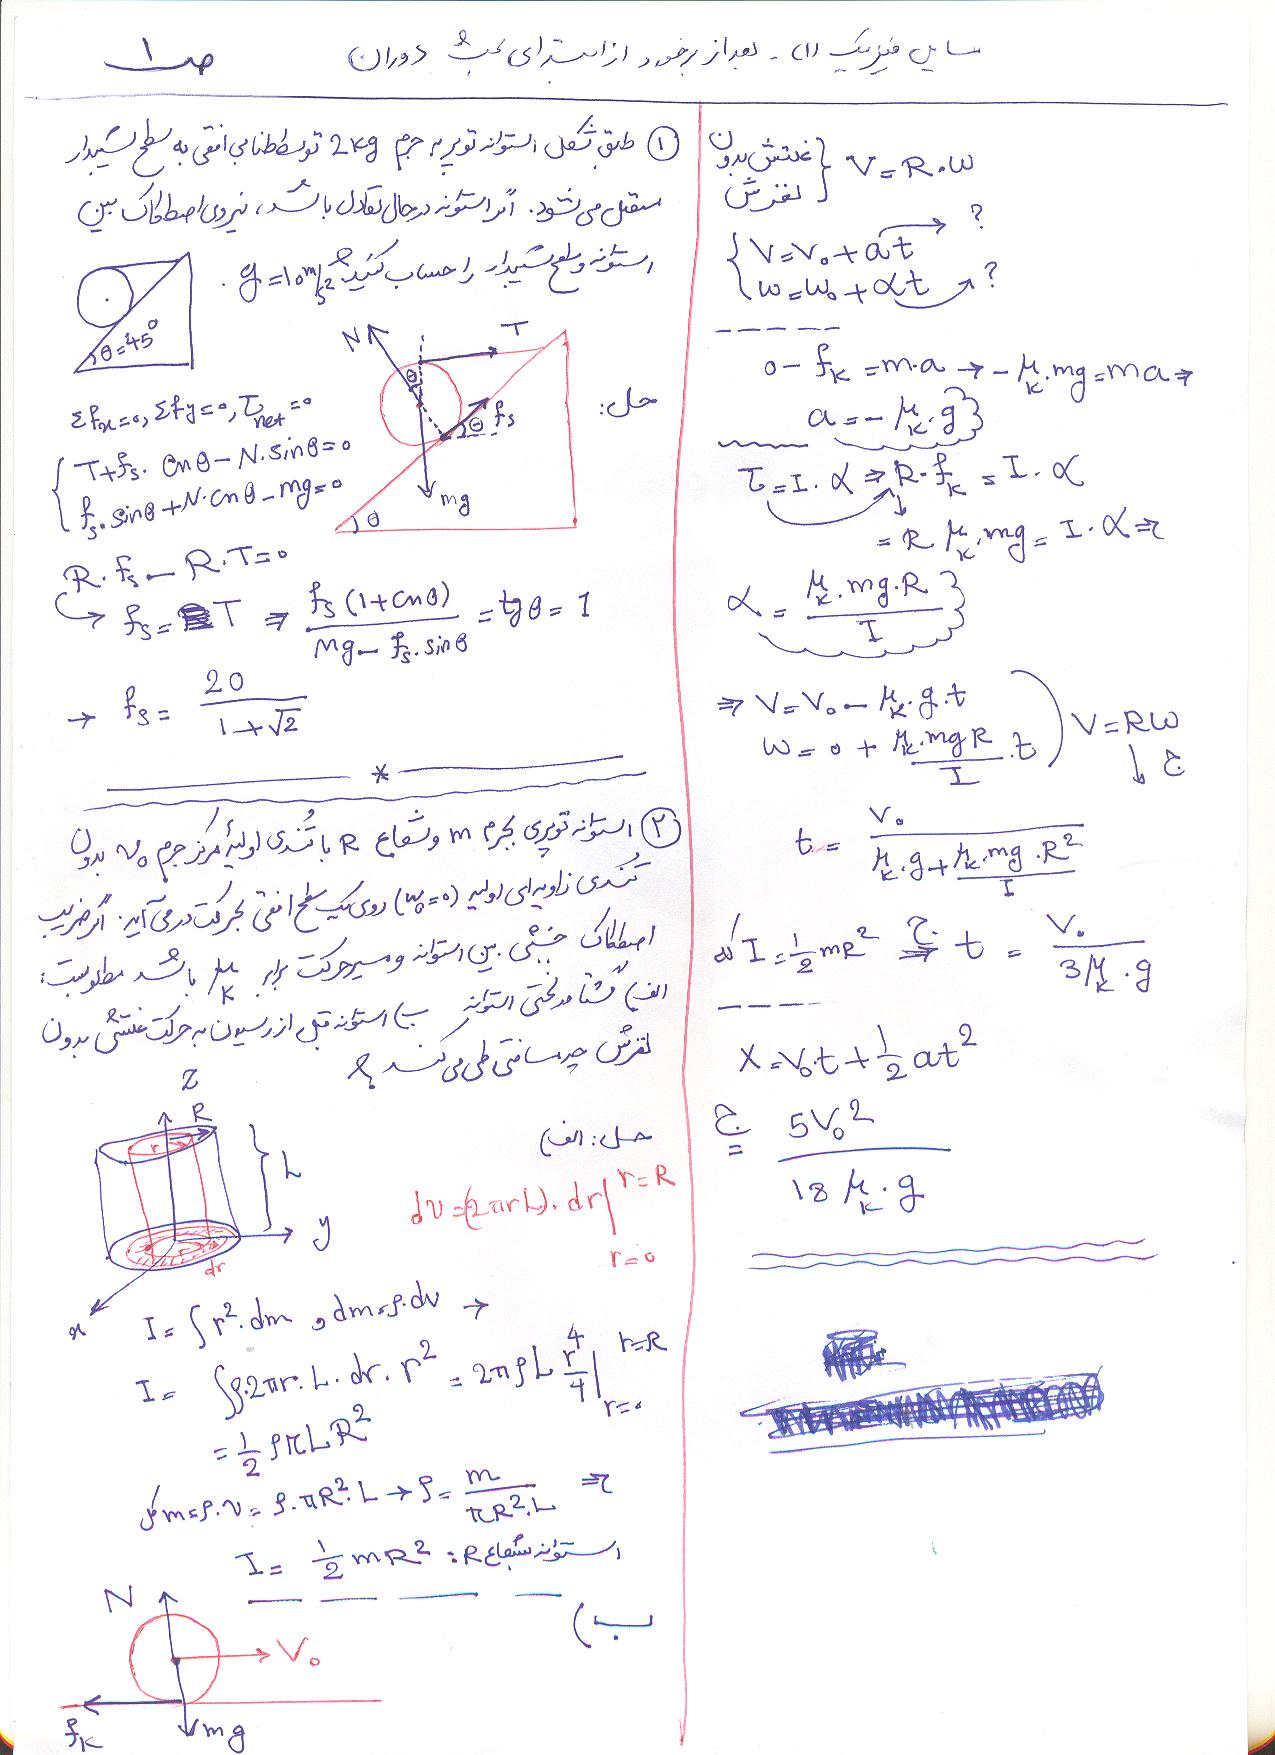 مسایل فیزیک (۱) - بعد از برخورد از ابتدای بحث دوران
ص ۱
۱ طبق شکل استوانه توپر به جرم 2kg توسط طنابی افقی به سطح شیبدار
متصل می‌شود. اگر استوانه در حال تعادل باشد، نیروی اصطکاک بین
استوانه و سطح شیبدار را حساب کنید؟ g=10 m/s²
θ=45°
حل:
N
T
θ
fs
θ
mg
θ
Σfx=0, Σfy=0, τnet=0
T+fs.Cosθ-N.sinθ=0
fs.sinθ+N.Cosθ-mg=0
R.fs-R.T=0
fs=T ⇒ fs(1+Cosθ)/(mg-fs.sinθ) = tgθ = 1
→ fs = 20/(1+√2)
*
۲ استوانه توپری بجرم m و شعاع R با تندی اولیهٔ مرکز جرم v₀ بدون
تندی زاویه‌ای اولیه (ω₀=0) روی یک سطح افقی بحرکت در می‌آید. اگر ضریب
اصطکاک جنبشی بین استوانه و مسیر حرکت برابر μk باشد مطلوبست:
الف) گشتاور لختی استوانه ب) استوانه قبل از رسیدن به حرکت غلتشی بدون
لغزش چه مسافتی طی می‌کند؟
حل: الف)
Z
R
r
L
y
r
dr
x
dv=(2πrL).dr |r=R r=0
I=∫r².dm و dm=ρ.dv →
I= ∫ρ.2πr.L.dr.r² = 2πρL r⁴/4 |r=R r=0
= 1/2 ρπLR²
کل m=ρ.v = ρ.πR².L → ρ= m/(πR².L) ⇒
I= 1/2 mR² : استوانه بشعاع R
ب)
N
V₀
fk
mg
غلتش بدون لغزش } V=R.ω
V=V₀+at → ?
ω=ω₀+αt → ?
0-fk=m.a → -μk.mg=ma ⇒
a=-μk.g
τ=I.α ⇒ R.fk=I.α
= R μk.mg = I.α ⇒
α= μk.mg.R/I
⇒ V=V₀-μk.g.t
ω=0+ μk.mgR/I .t
V=Rω
ج
t= V₀/(μk.g+ μk.mg.R²/I)
I=1/2 mR² ⇒ج t = V₀/(3μk.g)
X=V₀t+1/2 at²
ج = 5V₀²/(18μk.g)